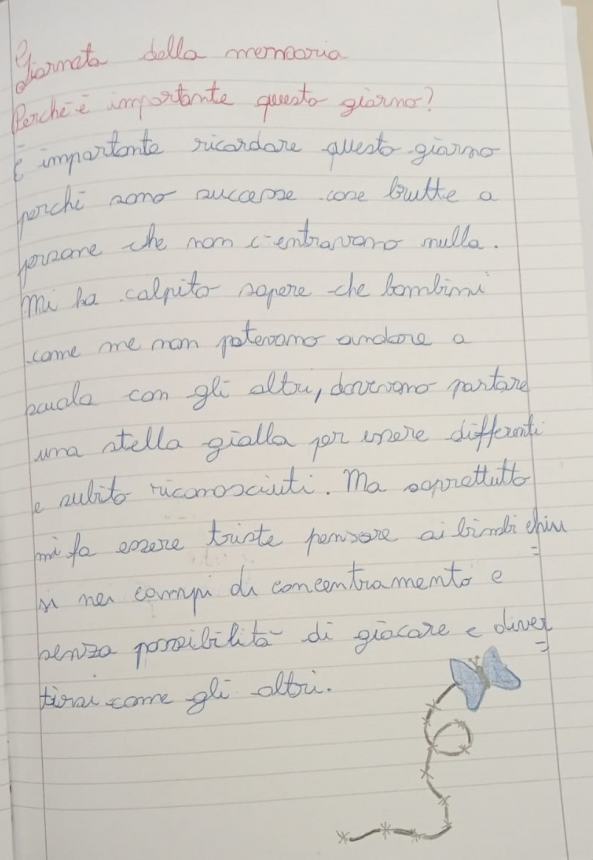 Giornata della memoria
Perché è importante questo giorno?
È importante ricordare questo giorno
perché sono successe cose brutte a
persone che non c'entravano nulla.
Mi ha colpito sapere che bambini
come me non potevano andare a
scuola con gli altri, dovevano portare
una stella gialla per essere differenti
e subito riconosciuti. Ma soprattutto
mi fa essere triste pensare ai bimbi chiu
si nei campi di concentramento e
senza possibilità di giocare e diver
tirsi come gli altri.